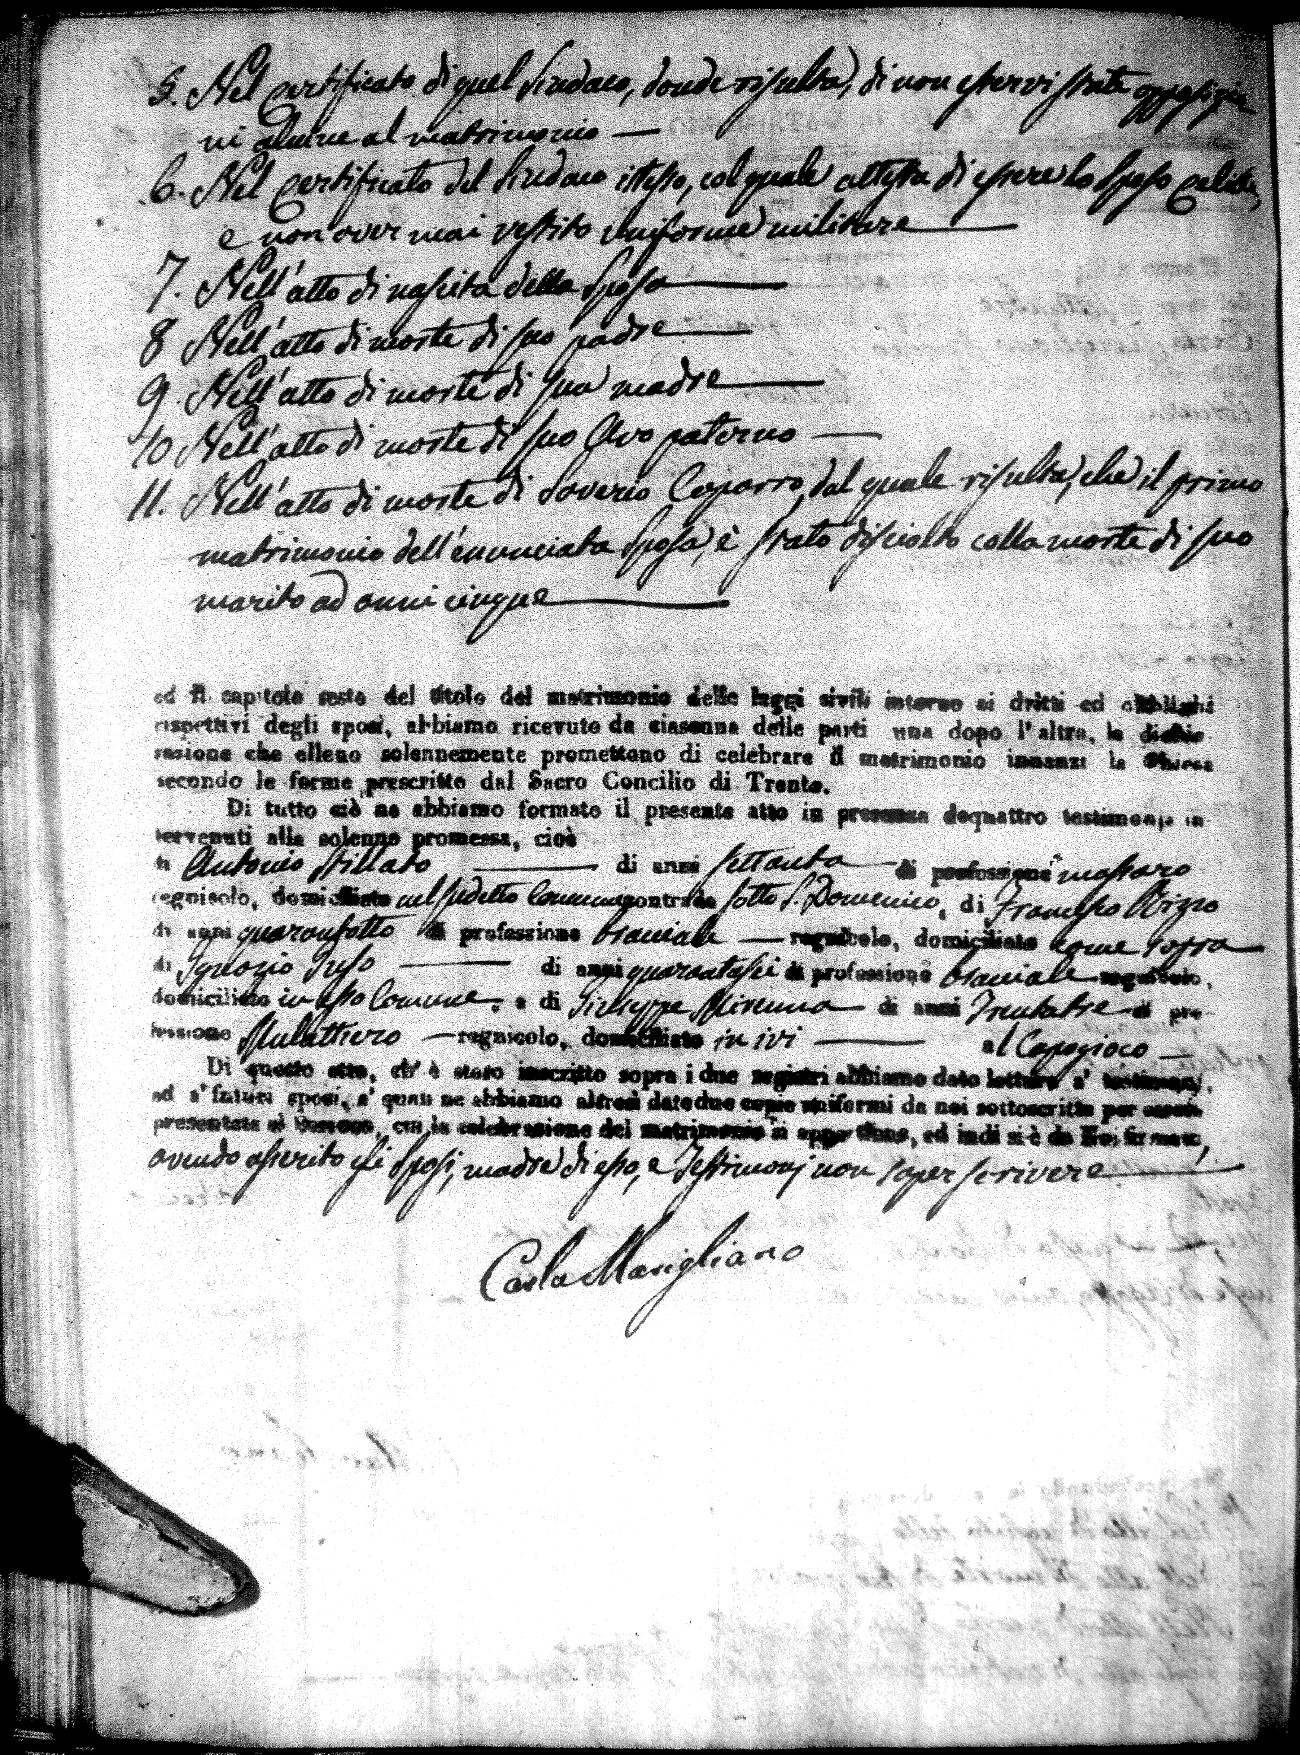 5. Nel certificato di quel Sindaco, donde risulta, di non esservi state opposizio
ni alcune al matrimonio —
6. Nel certificato del Sindaco istesso, col quale attesta di essere lo Sposo celibe,
e non aver mai vestito uniforme militare —
7. Nell'atto di nascita della Sposa —
8 Nell'atto di morte di suo padre —
9. Nell'atto di morte di sua madre —
10 Nell'atto di morte di suo Avo paterno —
11. Nell'atto di morte di Saverio Caparro, dal quale risulta, che il primo
matrimonio dell'enunciata Sposa, è stato disciolto colla morte di suo
marito ad anni cinque —
ed il capitolo sesto del titolo del matrimonio delle leggi civili intorno ai dritti ed obblighi
rispettivi degli sposi, abbiamo ricevuto da ciascuna delle parti una dopo l'altra, la dichia
razione che elleno solennemente promettono di celebrare il matrimonio innanzi la Chiesa
secondo le forme prescritte dal Sacro Concilio di Trento.
Di tutto ciò ne abbiamo formato il presente atto in presenza de quattro testimonj in
tervenuti alla solenne promessa, cioè
di Antonio Stillato — di anni settanta — di professione massaro
regnicolo, domiciliato nel sudetto Comune contrada sotto S. Domenico, di Francesco Rizzo
di anni quarantotto di professione bracciale — regnicolo, domiciliato come sopra
di Ignazio — di anni quarantasei di professione bracciale regnicolo,
domiciliato in esso Comune, e di Giuseppe di anni Trentatre di pro
fessione Mulattiero — regnicolo, domiciliato in ivi — al Capogioco —
Di questo atto, ch' è stato inscritto sopra i due registri abbiamo dato lettura a' testimonj,
ed a' futuri sposi, a' quali ne abbiamo altresì date due copie uniformi da noi sottoscritte per essere
presentate al Parroco, cui la celebrazione del matrimonio si appartiene, ed indi si è da Noi firmato,
avendo asserito essi Sposi, madre di esso, e Testimonj non saper scrivere —
Carlo Marigliano